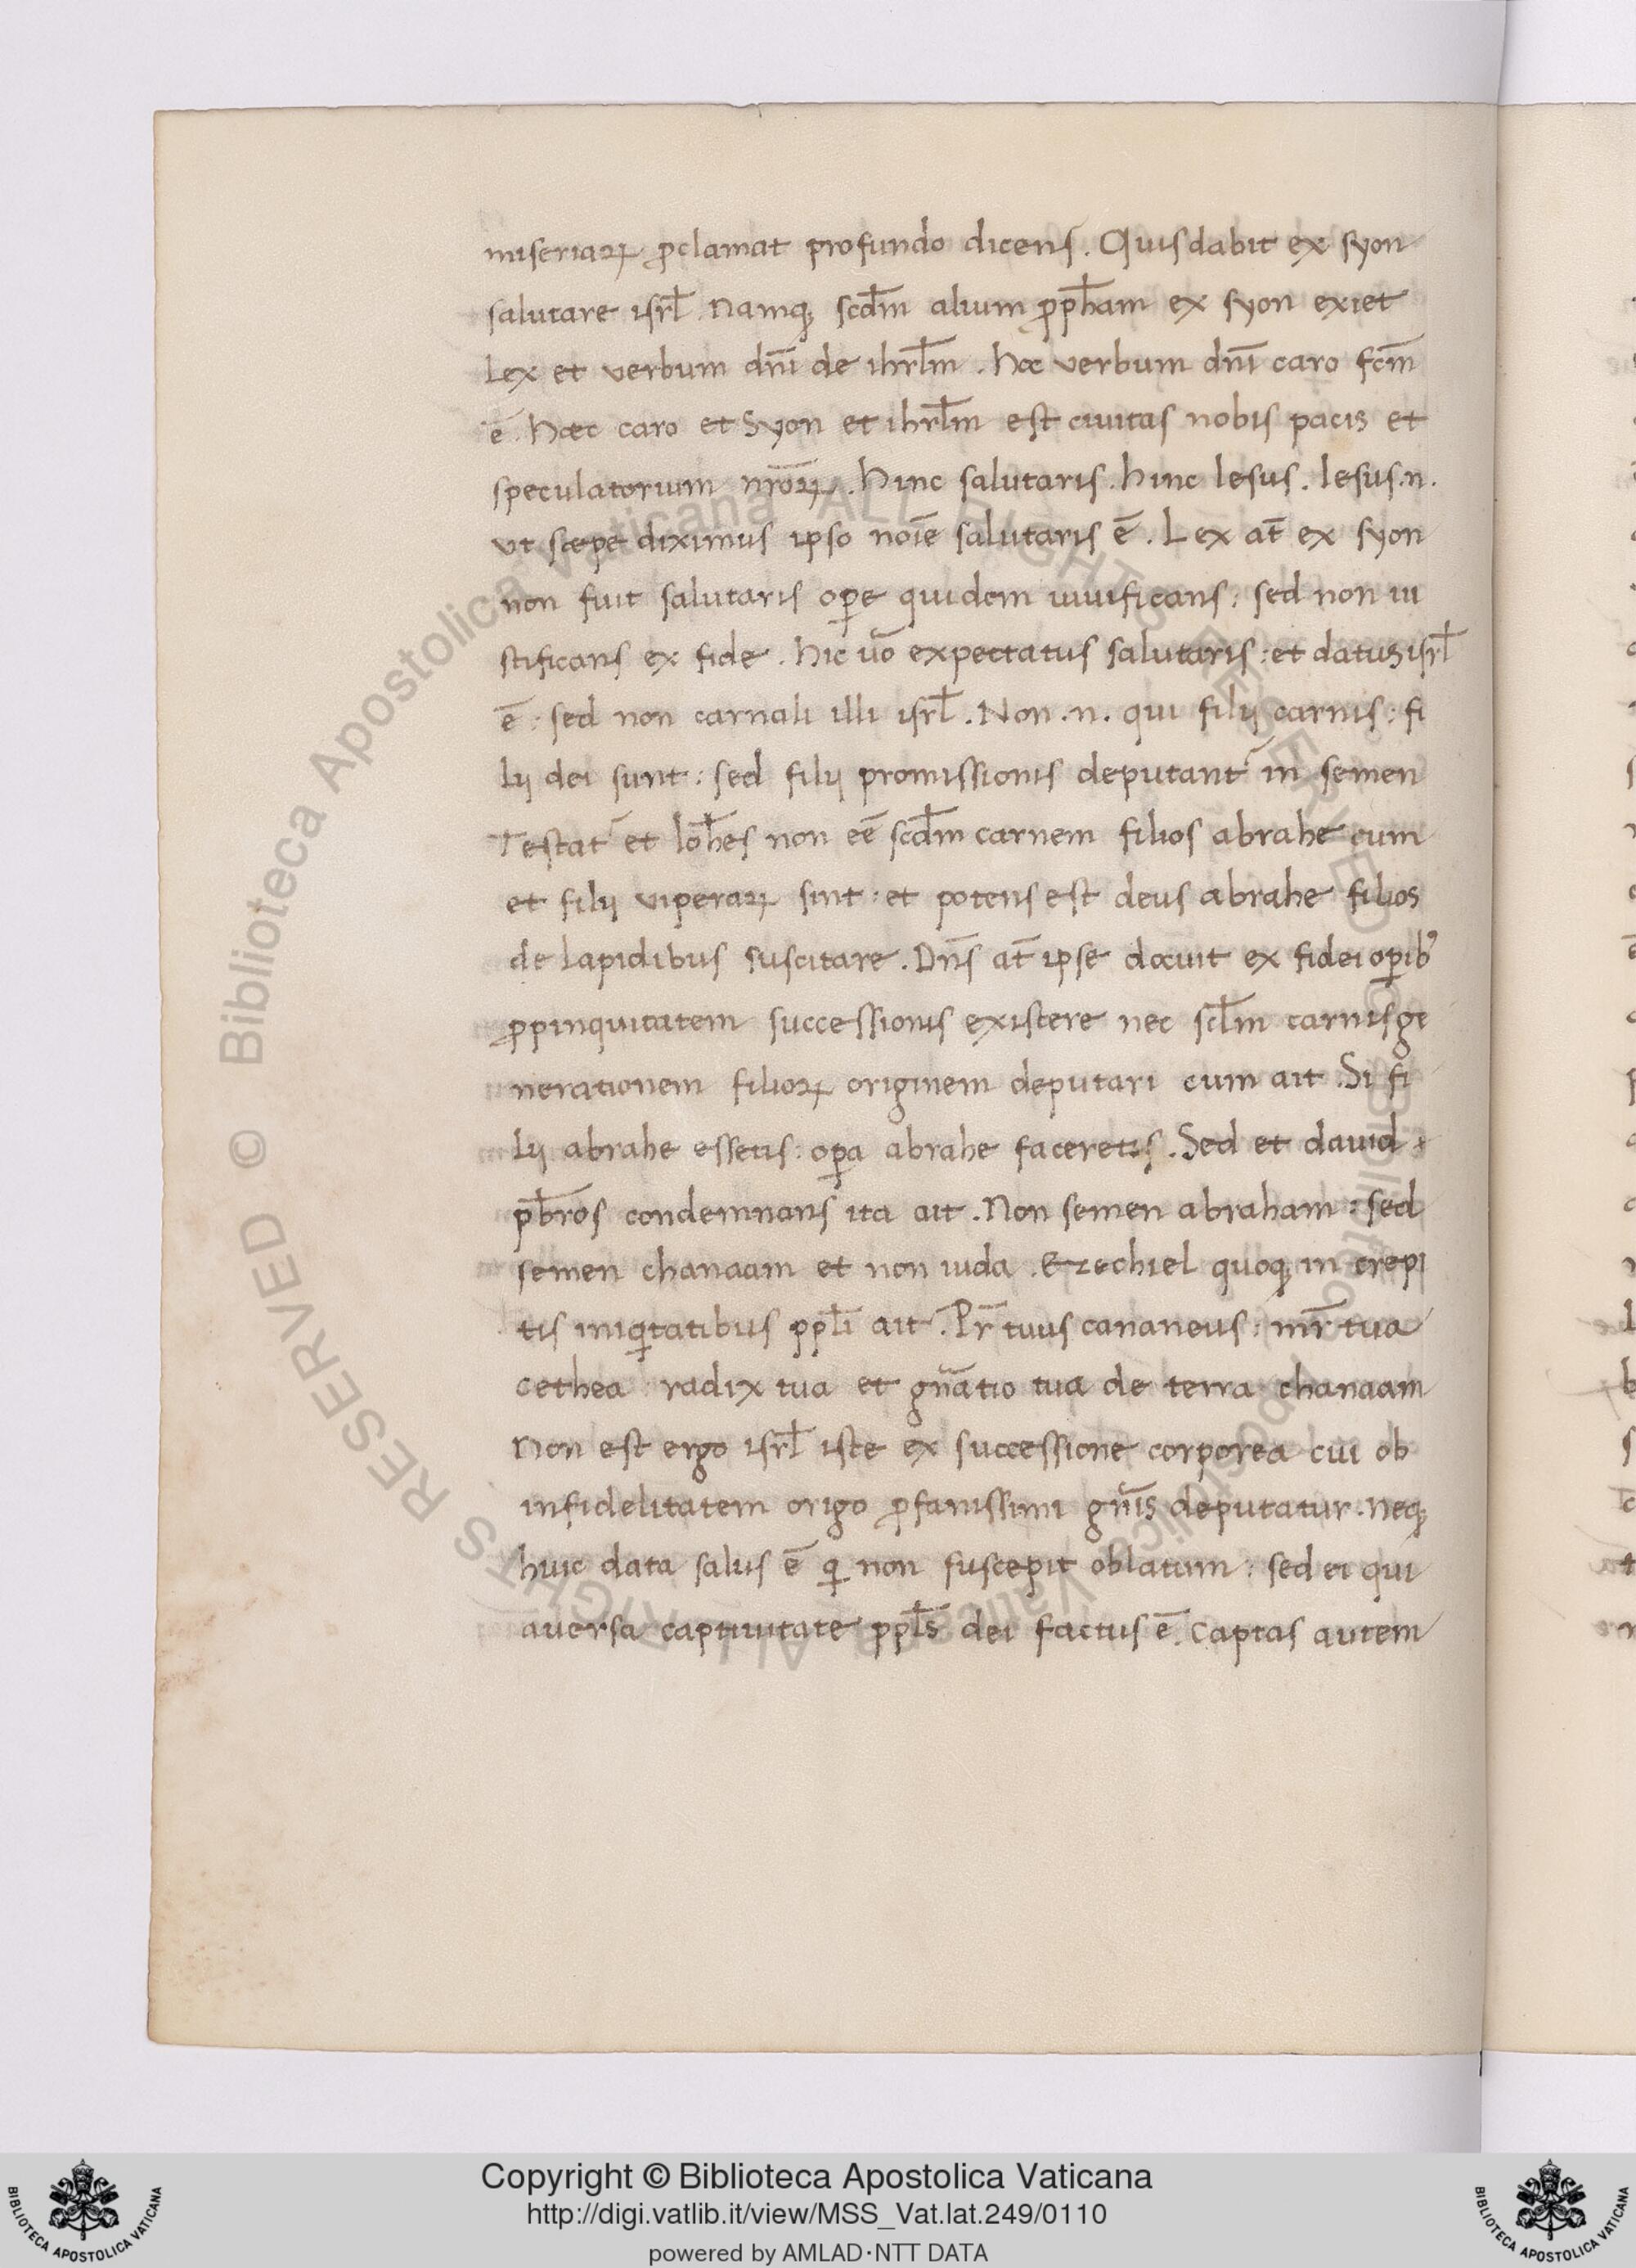 miseriaꝝ ꝓclamat profundo dicens. Quis dabit ex syon
salutare isrł. Namqꝫ scđm alium ꝓpħam ex syon exiet
Lex et verbum dn̄i de ihrłm. Hoc verbum dn̄i caro fcm̄
ē. Haec caro et Syon et ihrłm est ciuitas nobis pacis et
speculatorium nr̄oꝝ. Hinc salutaris. hinc Iesus. Iesus .n.
ut saepe diximus ipso noīe salutaris ē. Lex at̄ ex syon
non fuit salutaris oꝑe quidem uiuificans: sed non iu
stificans ex fide. hic uō expectatus salutaris: et datus isrł
ē: sed non carnali illi isrł. Non .n. qui filij carnis: fi
lij dei sunt: sed filij promissionis deputant᷑ in semen
Testat᷑ et Ioħes non eē scđm carnem filios abrahe cum
et filij uiperaꝝ sint: et potens est deus abrahe filios
de lapidibus suscitare. Dn̄s at̄ ipse docuit ex fidei oꝑib⁹
ꝓpinquitatem successionis existere nec scđm carnis ge
nerationem filioꝝ originem deputari cum ait. Si fi
lij abrahe essetis: oꝑa abrahe faceretis. Sed et dauid
pƀros condemnans ita ait. Non semen abraham: sed
semen chanaam et non iuda. Ezechiel quoqꝫ in crepi
tis iniqtatibus ppłi ait. Pr̄ tuus cananeus: mr̄ tua
cethea: radix tua et gn̄atio tua de terra chanaam
Non est ergo isrł iste ex successione corporea cui ob
infidelitatem origo ꝓfanissimi gn̄is deputatur. Neqꝫ
huic data salus ē q non suscepit oblatum: sed ei qui
auersa captiuitate ppłs dei factus ē. Captas autem
© Biblioteca Apostolica Vaticana ALL RIGHTS RESERVED
© Biblioteca Apostolica Vaticana ALL RIGHTS RESERVED
BIBLIOTECA APOSTOLICA VATICANA
Copyright © Biblioteca Apostolica Vaticana
http://digi.vatlib.it/view/MSS_Vat.lat.249/0110
powered by AMLAD·NTT DATA
BIBLIOTECA APOSTOLICA VATICANA